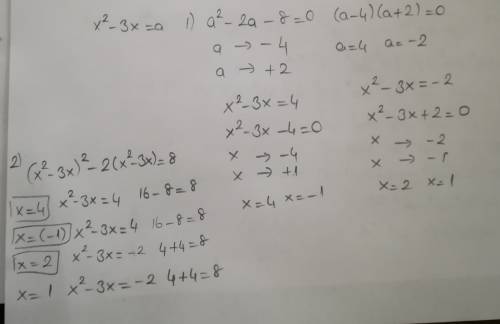 x²-3x=a 1) a²-2a-8=0 (a-4)(a+2)=0
a → -4 a=4 a=-2
a → +2
x²-3x=4 x²-3x=-2
x²-3x-4=0 x²-3x+2=0
x → -4 x → -2
x → +1 x → -1
x=4 x=-1 x=2 x=1
2) (x²-3x)²-2(x²-3x)=8
x=4 x²-3x=4 16-8=8
x=(-1) x²-3x=4 16-8=8
x=2 x²-3x=-2 4+4=8
x=1 x²-3x=-2 4+4=8